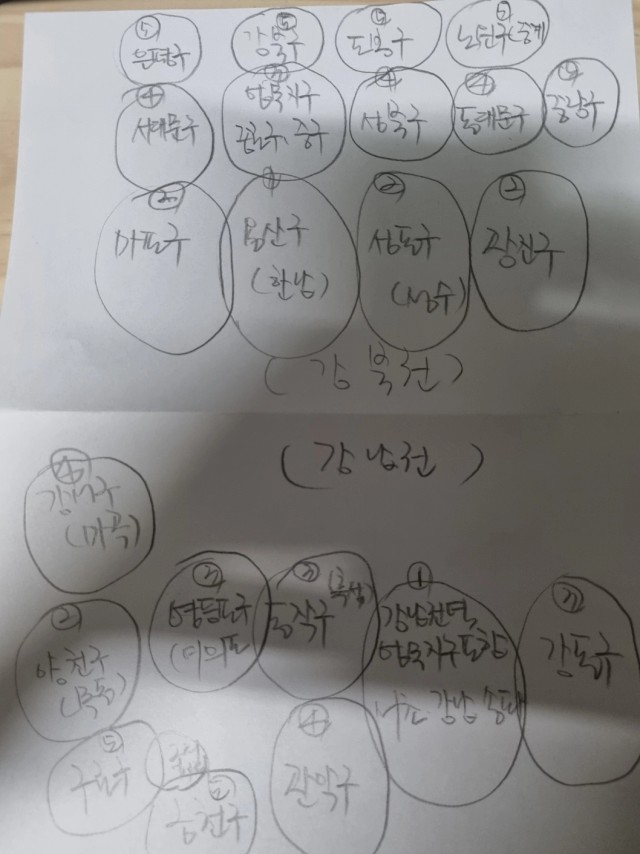 ⑤
은평구
⑤
강북구
⑤
도봉구
노원구(중계
④
서대문구
③
업무지구
종로구, 중구
④
성북구
④
동대문구
④
중랑구
②
마포구
①
용산구
(한남)
②
성동구
(성수)
②
광진구
(강북권)
(강남권)
④
강서구
(마곡)
②
양천구
(목동)
②
영등포구
(여의도
③
(흑석)
동작구
①
강남한덕
업무지구포함
서초 강남 송파
③
강동구
⑤
구로구
⑤
금천구
④
관악구